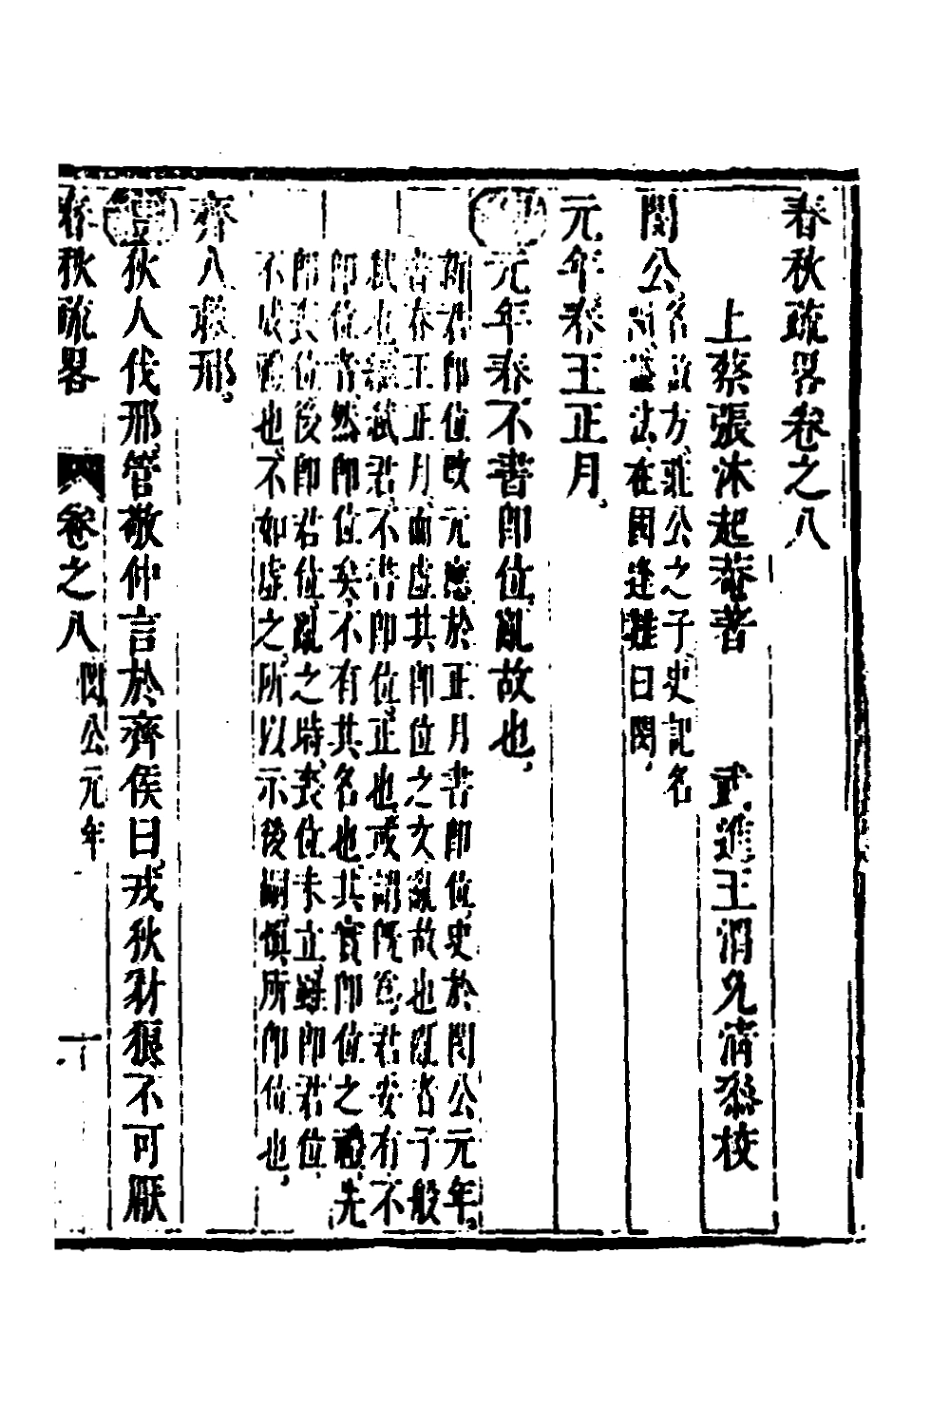 春秋疏畧卷之八
上蔡張沐起菴著 武進王渭允清叅校
閔公名啟方莊公之子史記名
閔謚法在國逢難曰閔
元年春王正月
元年春不書即位亂故也
新君即位改元應於正月書即位史於閔公元年
書春王正月而虛其即位之文亂故也亂者子般
弑也繼弑君不書即位正也或謂既為君安有不
即位者然即位矣不有其名也其實即位之禮先
即喪位後即君位亂之時喪位未立雖即君位
不成禮也不如虛之所以示後嗣慎所即位也
齊人救邢
狄人伐邢管敬仲言於齊侯曰戎狄豺狼不可厭
春秋疏畧 卷之八 閔公元年 一